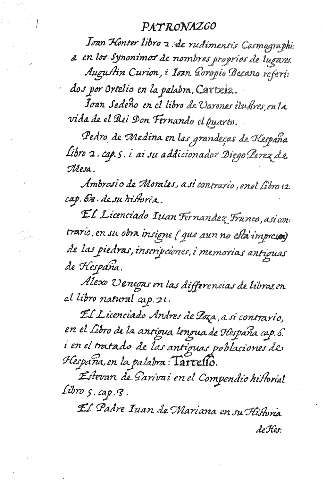 PATRONAZGO
Ioan Honter libro 2. de rudimentis Cosmographi-
a en los synonimos de nombres proprios de lugares.
Augustin Curion, i Ioan Goropio Becano referi-
dos por Ortelio en la palabra, Carteia.
Ioan Sedeño en el libro de Varones ilustres, en la
vida de el Rei Don Fernando el quarto.
Pedro de Medina en las grandezas de Hespaña
libro 2. cap. 5. i ai su addicionador Diego Perez de
Mesa.
Ambrosio de Morales, a si contrario, en el libro 12.
cap. de su historia.
El Licenciado Iuan Fernandez Franco, a si con-
trario, en su obra insigne (que aun no está impressa)
de las piedras, inscripciones, i memorias antiguas
de Hespaña.
Alexo Venegas en las differencias de libros en
el libro natural cap. 21.
El Licenciado Andres de Poza, a si contrario,
en el libro de la antigua lengua de Hespaña cap. 6.
i en el tratado de las antiguas poblaciones de
Hespaña, en la palabra: Tartesso.
Estevan de Garivai en el Compendio historial
libro 5. cap. 3.
El Padre Iuan de Mariana en su Historia
de Hes-